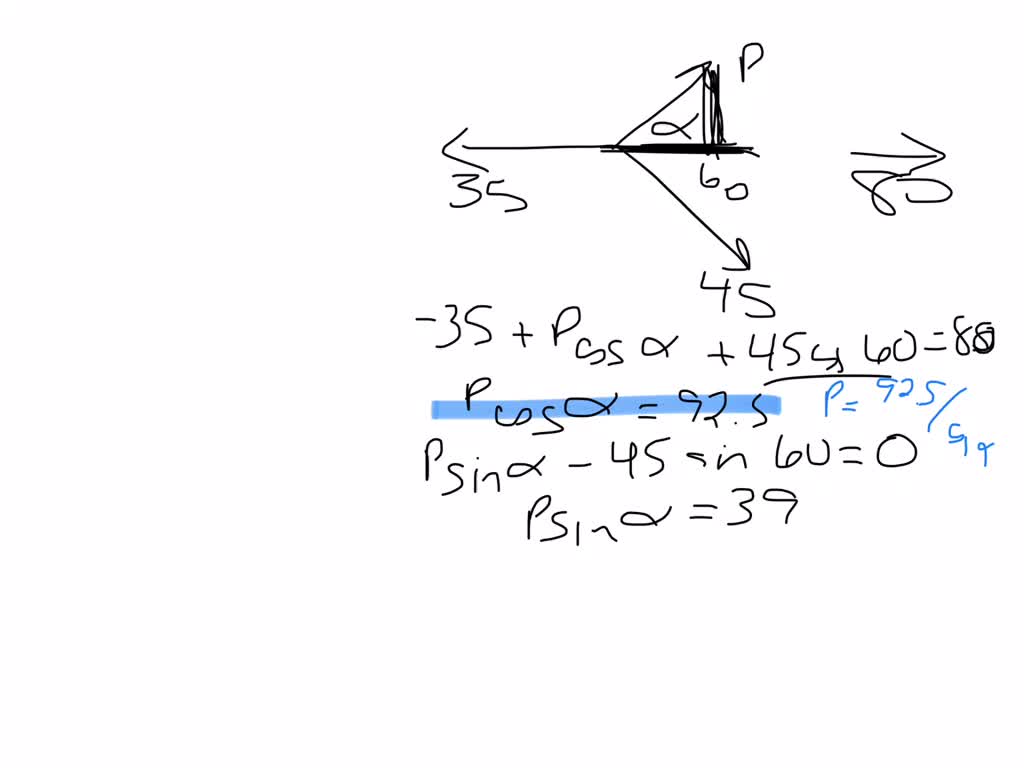 P
α
35
60
80
45
-35 + P cos α + 45 cos 60 = 80
P cos α = 92.5
P = 92.5 / cos α
P sin α - 45 sin 60 = 0
P sin α = 39